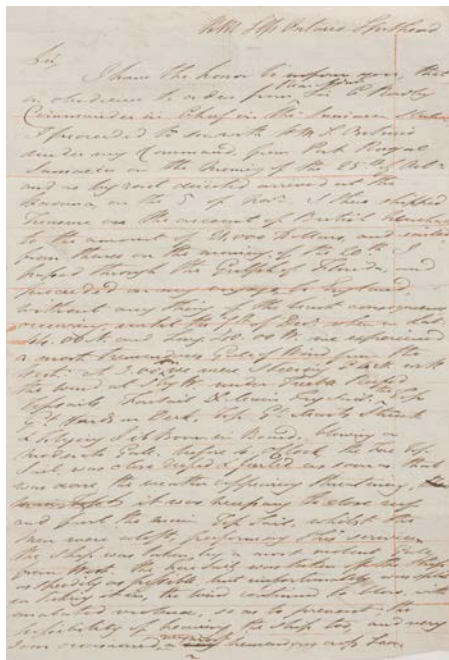 HM Slp Ontario Spithead
Sir,
I have the honor to inform you, that
in obedience to orders from Sir C Rowley
Commander in Chief on the Jamaica Station
I proceeded to sea with H.M.S. Ontario
under my Command, from Port Royal
Jamaica on the Evening of the 25th of Octr
and as by rout directed arrived at the
Havanna, on the 5 of Novr I there shipped
Treasure on the account of British Merchants
to the amount of Dollars, and sailed
from thence on the morning of the 20th I
passed through the Gulph of Florida, and
proceeded on my voyage to England,
without any thing of the least consequence
occurring, until the of Decr when in Lat.
N. and Long. W. we experienced
a most tremendous Gale of Wind from the
at 3.00 we were Steering East with
the wind at S by W under Treble Reefed
Topsails, Foresail
Yards on Deck, Top Gt Masts Struck
Jib Boom in Board, blowing a
moderate Gale. before 4 oClock the fore Top
Sail was close reefed & furled as soon as that
was done the weather appearing threatening,
it was necessary to close reef
and furl the main Top sail. whilst the
men were aloft, performing this service
the Ship was taken by a most violent Gale
from North the fore sail was taken off the Ship
as speedily as possible but unfortunately was split
in taking in, the wind continued to blow, with
unabated violence, so as to prevent the
possibility of heaving the Ship too, and very
soon occasioned a tremendous cross Sea,